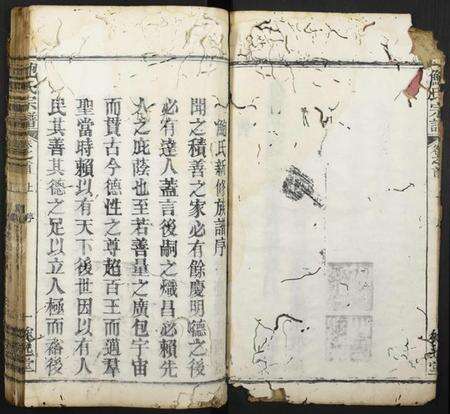 鮑氏新修族譜序
聞之積善之家必有餘慶明德之後
必有達人蓋言後嗣之熾昌必賴先
人之庇蔭也至若善量之廣包宇宙
而貫古今德性之尊超百王而邁群
聖當時賴以有天下後世因以有人
民其善其德之足以立人極而裕後
鮑氏宗譜
卷之首 上 序
鮑氏宗譜
卷之首